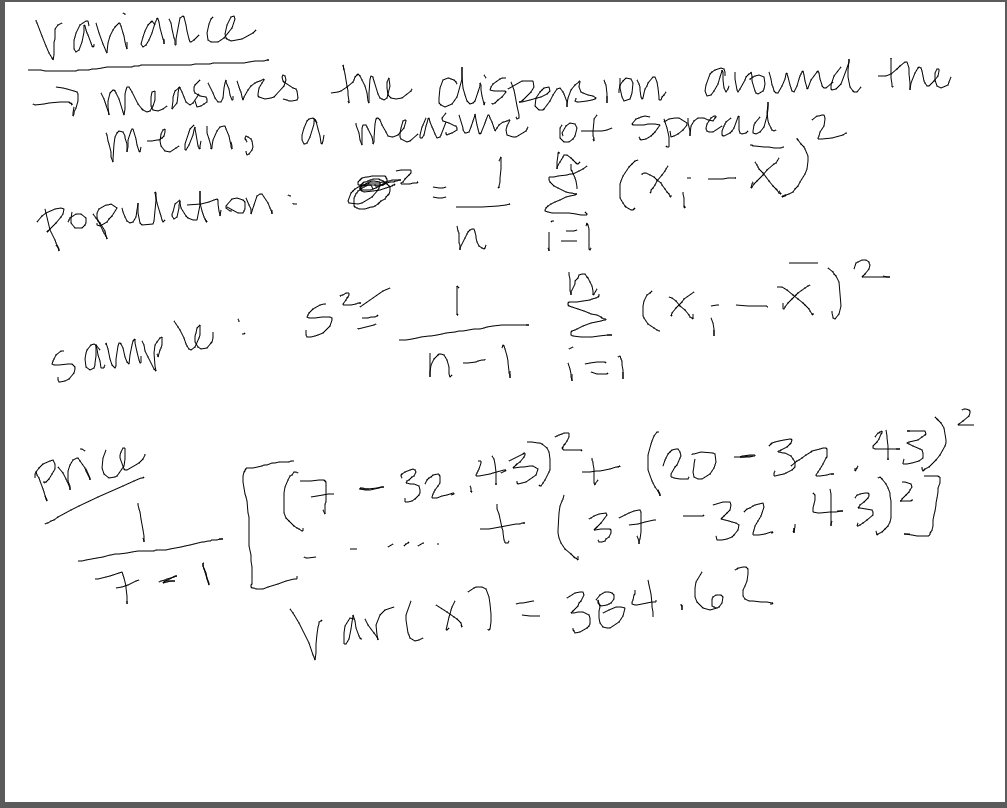 variance
→ measures the dispersion around the
mean, a measure of spread
population: σ² = 1/n Σ i=1 n (xᵢ - x̄)²
sample: s² = 1/(n-1) Σ i=1 n (xᵢ - x̄)²
Price
1/(7-1) [(7 - 32.43)² + (20 - 32.43)²
- - ..... + (37 - 32.43)²]
Var(x) = 384.62